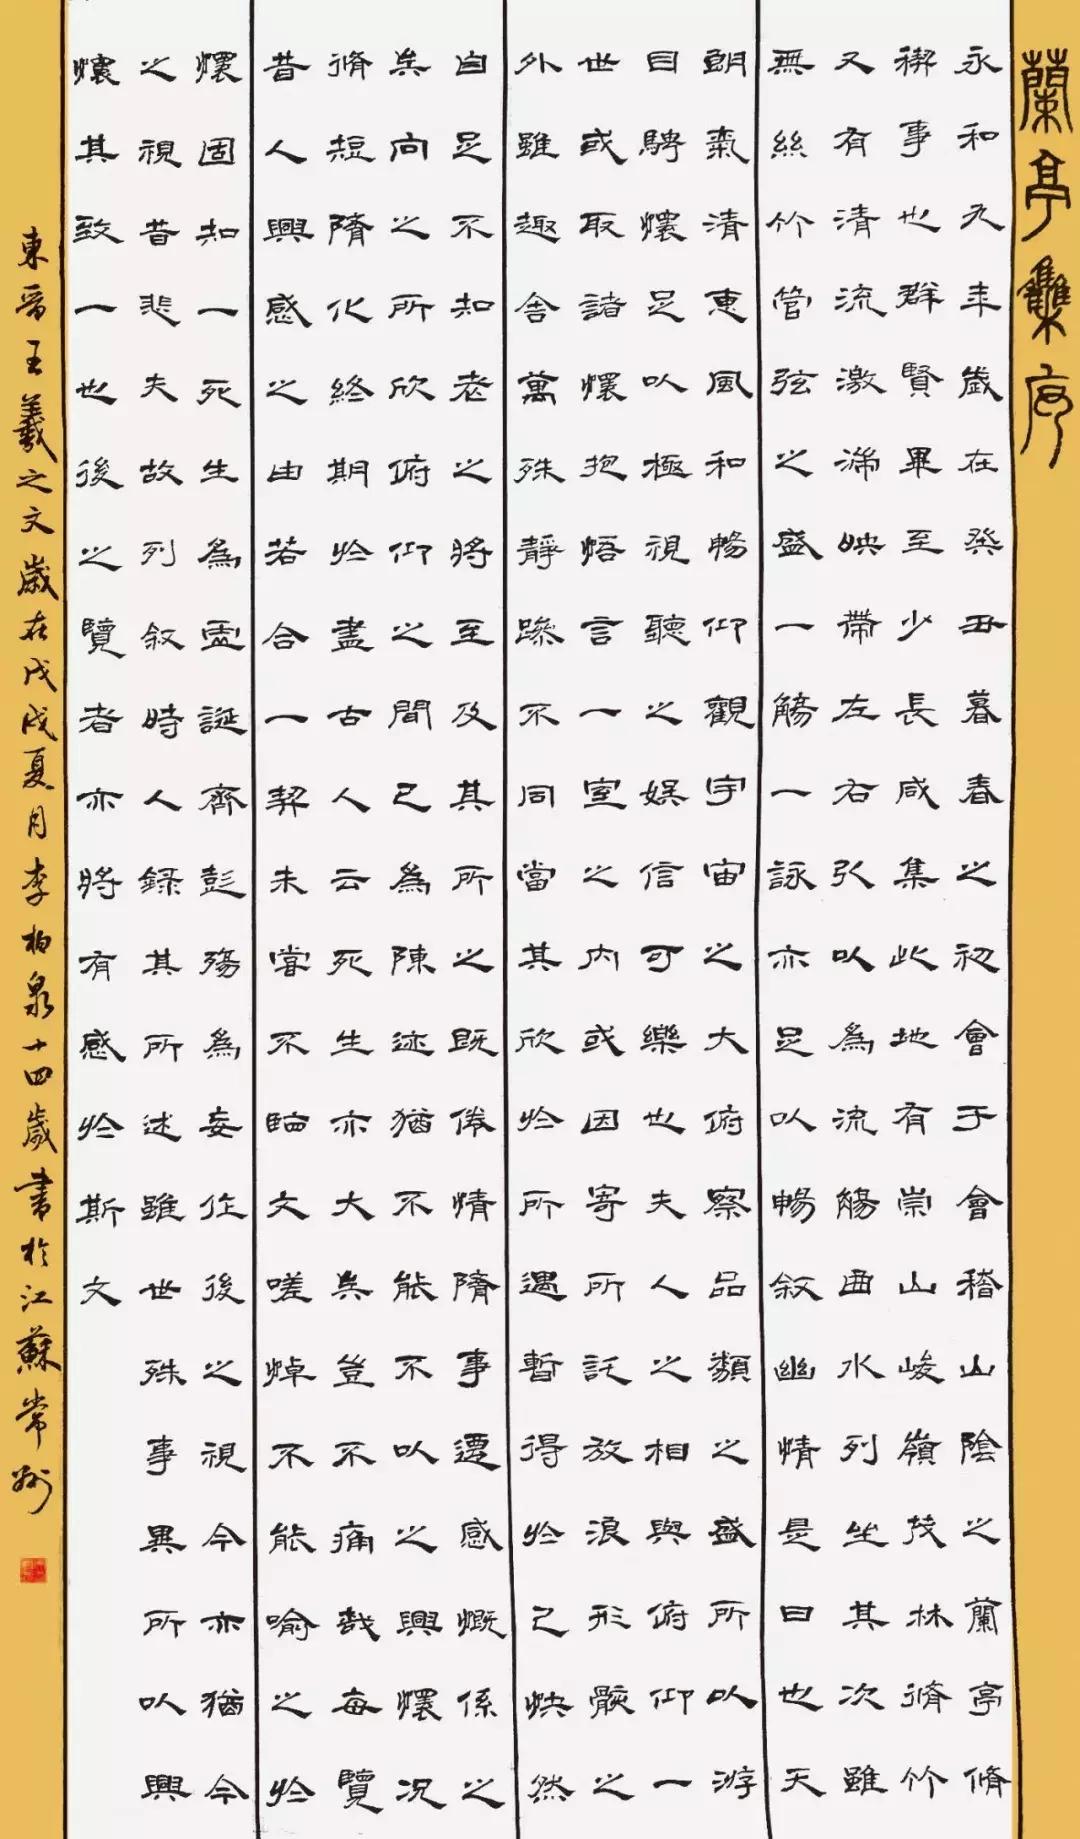 蘭亭集序
永和九年歲在癸丑暮春之初會于會稽山陰之蘭亭脩
禊事也群賢畢至少長咸集此地有崇山峻嶺茂林脩竹
又有清流激湍映帶左右引以為流觴曲水列坐其次雖
無絲竹管弦之盛一觴一詠亦足以暢叙幽情是日也天
朗氣清惠風和暢仰觀宇宙之大俯察品類之盛所以游
目騁懷足以極視聽之娛信可樂也夫人之相與俯仰一
世或取諸懷抱悟言一室之內或因寄所託放浪形骸之
外雖趣舍萬殊靜躁不同當其欣於所遇暫得於己快然
自足不知老之將至及其所之既倦情隨事遷感慨係之
矣向之所欣俯仰之間已為陳迹猶不能不以之興懷況
脩短隨化終期於盡古人云死生亦大矣豈不痛哉每覽
昔人興感之由若合一契未嘗不臨文嗟悼不能喻之於
懷固知一死生為虛誕齊彭殤為妄作後之視今亦猶今
之視昔悲夫故列叙時人録其所述雖世殊事異所以興
懷其致一也後之覽者亦將有感於斯文
東晉王羲之文歲在戊戌夏月李柏泉十四歲書於江蘇常州